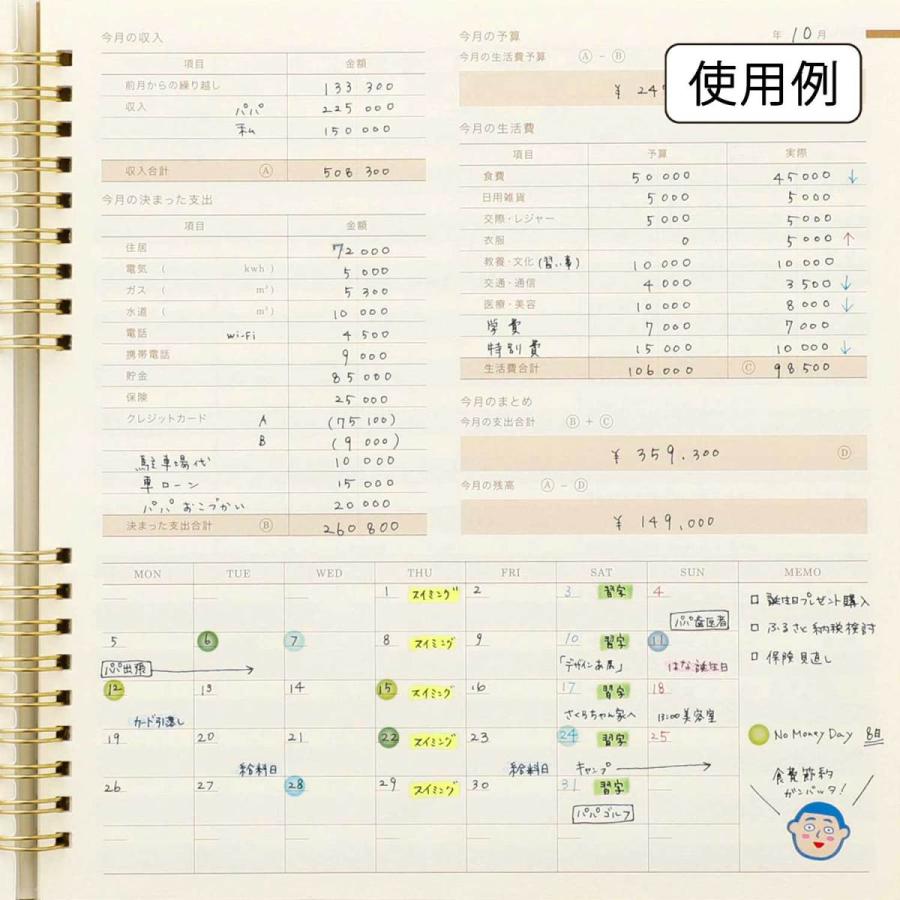 使用例
年 10 月
今月の収入
項目 金額
前月からの繰り越し 133 300
収入 パパ 225 000
私 150 000
収入合計 Ⓐ 508 300
今月の決まった支出
項目 金額
住居 72 000
電気 ( kwh ) 5 000
ガス ( m³ ) 5 300
水道 ( m³ ) 10 000
電話 Wi-Fi 4 500
携帯電話 9 000
貯金 85 000
保険 25 000
クレジットカード A (75 100)
B (9 000)
駐車場代 10 000
車ローン 15 000
パパおこづかい 20 000
決まった支出合計 Ⓑ 260 800
今月の予算
今月の生活費予算 Ⓐ − Ⓑ
¥ 24
今月の生活費
項目 予算 実際
食費 50 000 45 000 ↓
日用雑貨 5 000 5 000
交際・レジャー 5 000 5 000
衣服 0 5 000 ↑
教養・文化 (習い事) 10 000 10 000
交通・通信 4 000 3 500 ↓
医療・美容 10 000 8 000 ↓
学費 7 000 7 000
特別費 15 000 10 000 ↓
生活費合計 106 000 Ⓒ 98 500
今月のまとめ
今月の支出合計 Ⓑ + Ⓒ
¥ 359.300 Ⓓ
今月の残高 Ⓐ − Ⓓ
¥ 149,000
MON TUE WED THU FRI SAT SUN MEMO
1 スイミング 2 3 習字 4
パパ歯医者
5 6 7 8 スイミング 9 10 習字 11
パパ出張 「デザインあ展」 はな誕生日
12 13 14 15 スイミング 16 17 習字 18
カード引落し さくらちゃん家へ 13:00美容室
19 20 21 22 スイミング 23 24 習字 25
給料日 給料日 キャンプ
26 27 28 29 スイミング 30 31 習字
パパゴルフ
□ 誕生日プレゼント購入
□ ふるさと納税検討
□ 保険見直し
No Money Day 8日
食費節約
ガンバッタ!